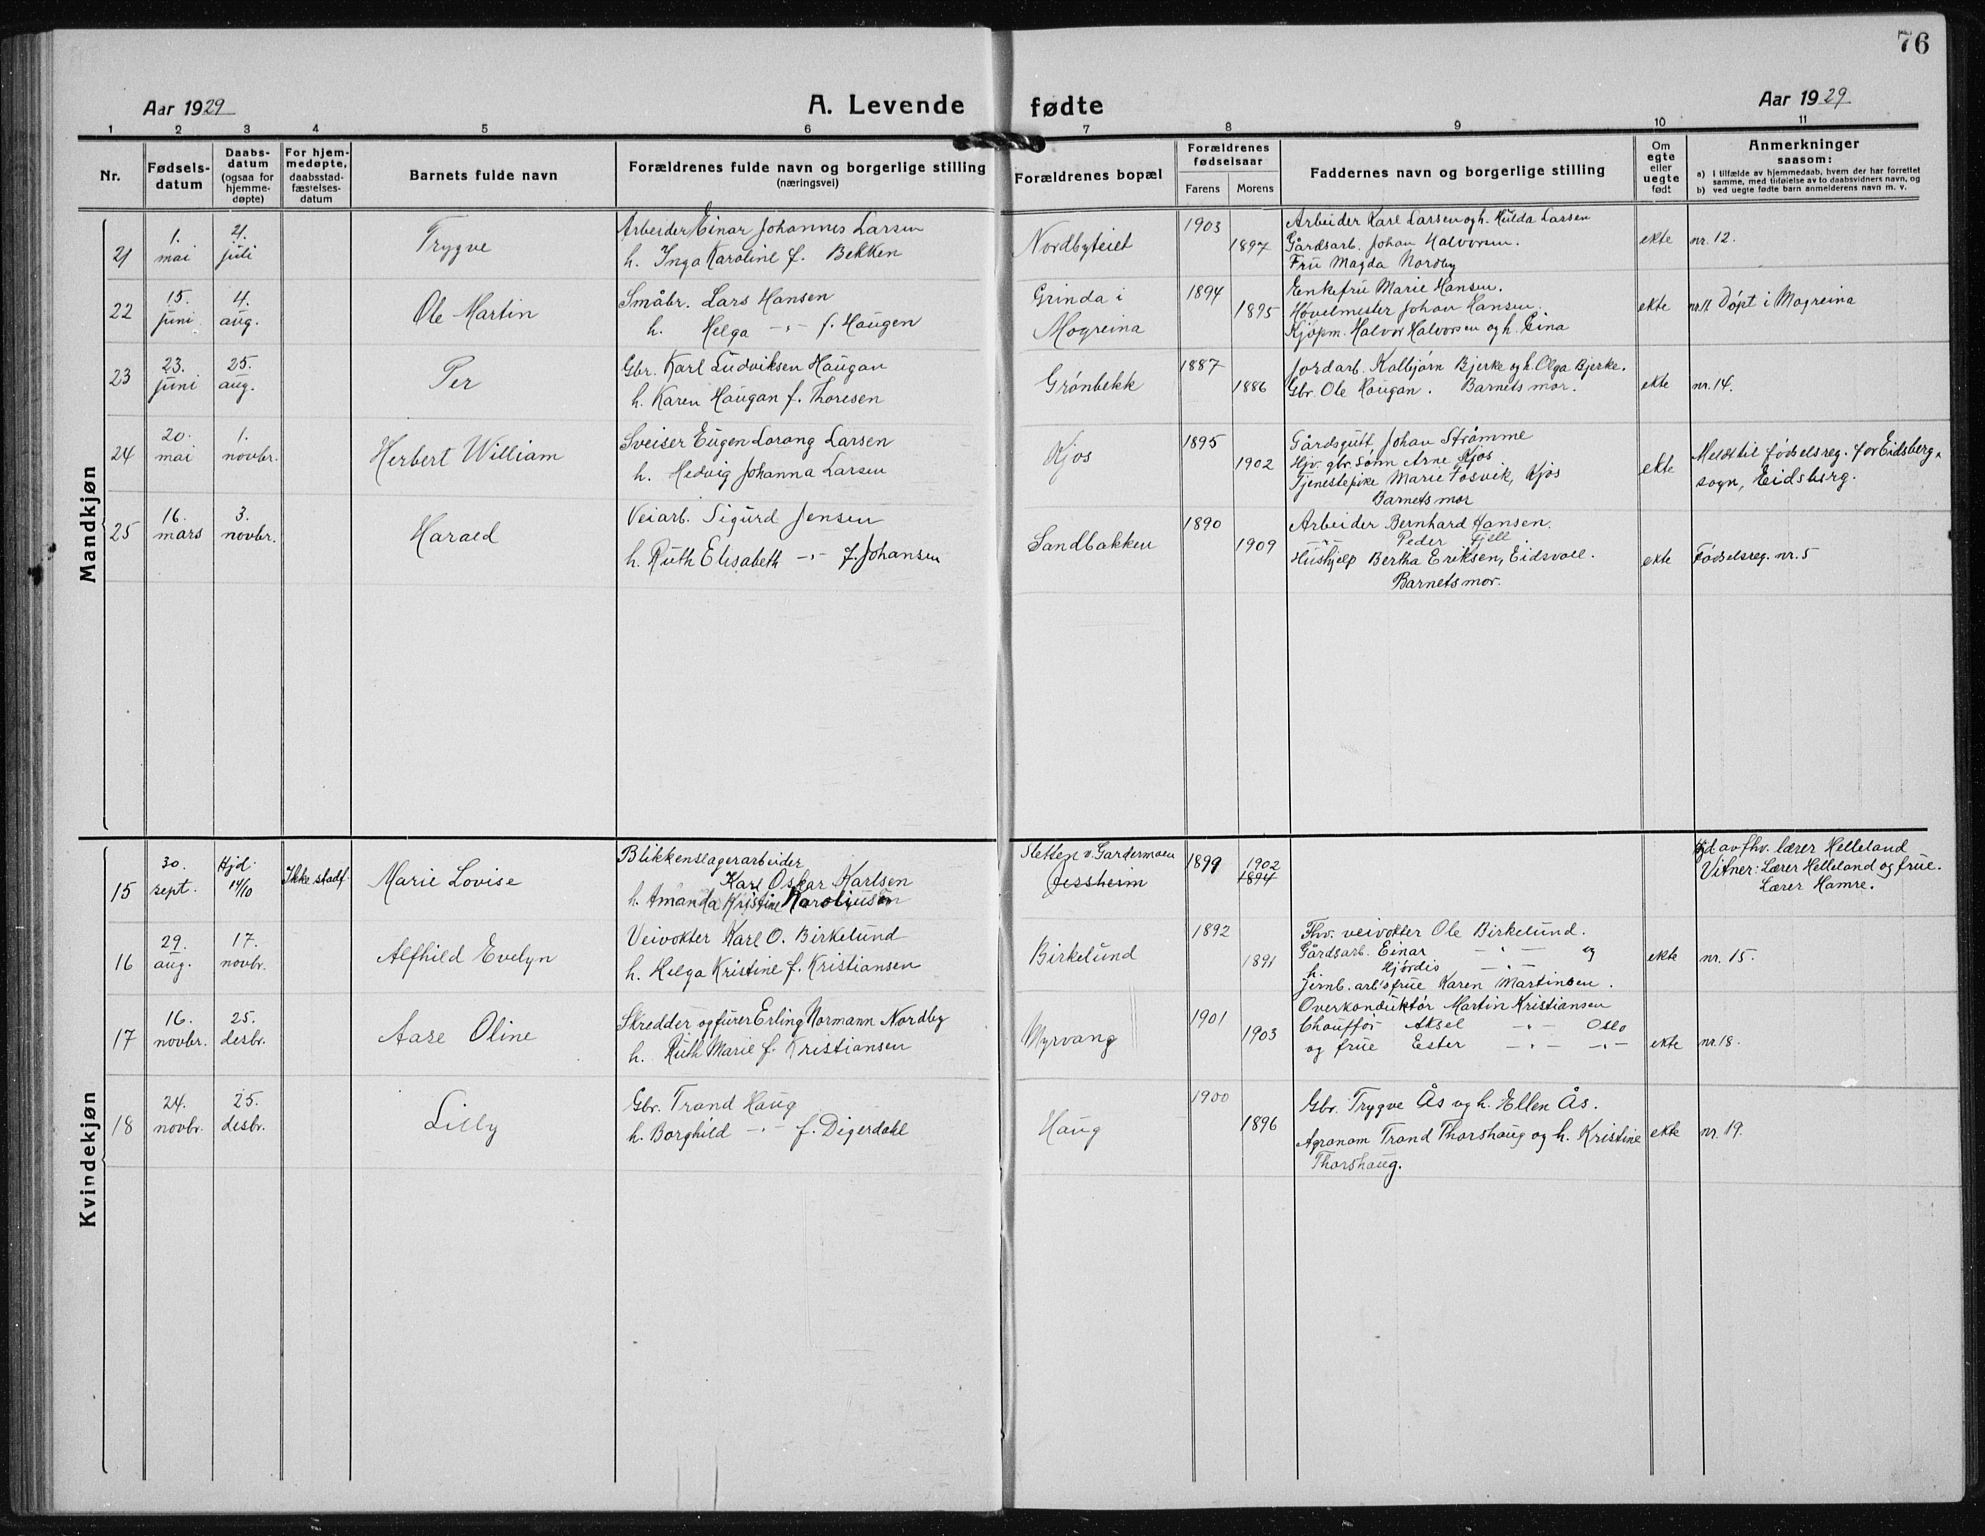 76
Aar 1929
A. Levende fødte
Aar 1929
1 2 3 4 5 6 7 8 9 10 11
Nr.
Fødsels-
datum
Daabs-
datum
(ogsaa for
hjemme-
døpte)
For hjem-
medøpte,
daabsstad-
fæstelses-
datum
Barnets fulde navn
Forældrenes fulde navn og borgerlige stilling
(næringsvei)
Forældrenes bopæl
Forældrenes
fødselsaar
Farens Morens
Faddernes navn og borgerlige stilling
Om
egte
eller
uegte
født
Anmerkninger
saasom:
a) I tilfælde av hjemmedaab, hvem der har forrettet
samme, med tilføielse av to daabsvidners navn, og
b) ved uegte fødte barn anmelderens navn m. v.
Mandkjøn
21
1.
mai
21.
juli
Trygve
Arbeider Einar Johannes Larsen
h. Inga Karoline f. Bekken
Nordbyteiet
1903
1897
Arbeider Karl Larsen og h. Hulda Larsen
Gårdsarb. Johan Halvorsen.
Fru Magda Nordby
ekte
nr. 12.
22
15.
juni
4.
aug.
Ole Martin
Småbr. Lars Hansen
h. Helga -"- f. Haugen
Grinda i
Mogreina
1894
1895
Enkefru Marie Hansen.
Høvelmester Johan Hansen.
Kjøpm. Halvor Halvorsen og h. Gina
ekte
nr. 11. Døpt i Mogreina
23
23.
juni
25.
aug.
Per
Gbr. Karl Ludviksen Haugan
h. Karen Haugan f. Thoresen
Grønbekk
1887
1886
Jordarb. Kolbjørn Bjerke og h. Olga Bjerke.
Gbr. Ole Haugan. Barnets mor.
ekte
nr. 14.
24
20.
mai
1.
novbr.
Herbert William
Sveiser Eugen Lorang Larsen
h. Hedvig Johanna Larsen
Kjos
1895
1902
Gårdsgutt Johan Strømme
Hjv. gbr. sønn Arne Kjos
Tjenestepike Marie Fosvik, Kjos
Barnets mor
ekte
Meldt til fødselsreg. for Eidsberg
sogn, Eidsberg.
25
16.
mars
3.
novbr.
Harald
Veiarb. Sigurd Jensen
h. Ruth Elisabeth -"- f. Johansen
Sandbakken
1890
1909
Arbeider Bernhard Hansen.
-"- Peder Fjell
Hushjelp Bertha Eriksen, Eidsvoll.
Barnets mor.
ekte
Fødselsreg. nr. 5
Kvindekjøn
15
30.
sept.
Hjd.
14/10
Ikke stadf.
Marie Lovise
Blikkenslagerarbeider
Karl Oskar Karlsen
h. Amanda Kristine Karoliussen
Sletten v. Gardermoen
Jessheim
1899
1902
1894
Hjd av fhv. lærer Helleland
Vitner: Lærer Helleland og frue.
Lærer Hamre.
16
29.
aug.
17.
novbr.
Alfhild Evelyn
Veivokter Karl O. Birkelund
h. Helga Kristine f. Kristiansen
Birkelund
1892
1891
Fhv. veivokter Ole Birkelund.
Gårdsarb. Einar -"- og
h. Hjørdis -"-
Jernb. arb's frue Karen Martinsen.
ekte
nr. 15.
17
16.
novbr.
25.
desbr.
Aase Oline
Skredder og furer Erling Normann Nordby
h. Ruth Marie f. Kristiansen
Myrvang
1901
1903
Overkonduktør Martin Kristiansen
Chauffør Aksel -"- Oslo
og frue Ester -"- -"-
ekte
nr. 18.
18
24.
novbr.
25.
desbr.
Lilly
Gbr. Trond Haug
h. Borghild -"- f. Digerdahl
Haug
1900
1896
Gbr. Trygve Ås og h. Ellen Ås.
Agronom Trond Thorshaug og h. Kristine
Thorshaug.
ekte
nr. 19.